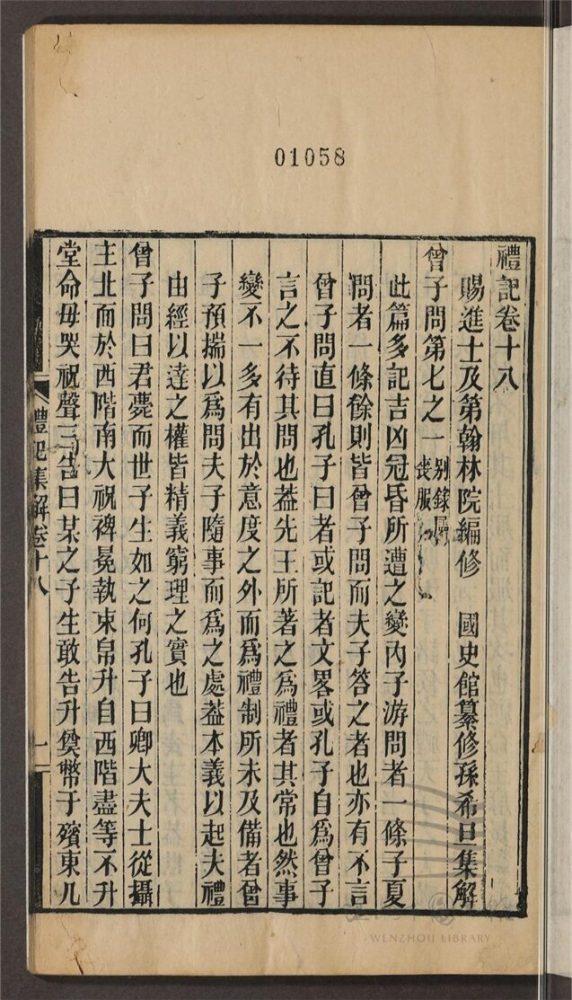 01058
禮記卷十八
賜進士及第翰林院編修 國史館纂修孫希旦集解
曾子問第七之一 别錄屬喪服
此篇多記吉凶冠昏所遭之變內子游問者一條子夏
問者一條餘則皆曾子問而夫子答之者也亦有不言
曾子問直曰孔子曰者或記者文畧或孔子自爲曾子
言之不待其問也葢先王所著之爲禮者其常也然事
變不一多有出於意度之外而爲禮制所未及備者曾
子預揣以爲問夫子隨事而爲之處葢本義以起夫禮
由經以達之權皆精義窮理之實也
曾子問曰君薨而世子生如之何孔子曰卿大夫士從攝
主北面於西階南大祝裨冕執束帛升自西階盡等不升
堂命毋哭祝聲三告曰某之子生敢告升奠幣于殯東几
禮記集解卷十八
一
WENZHOU LIBRARY